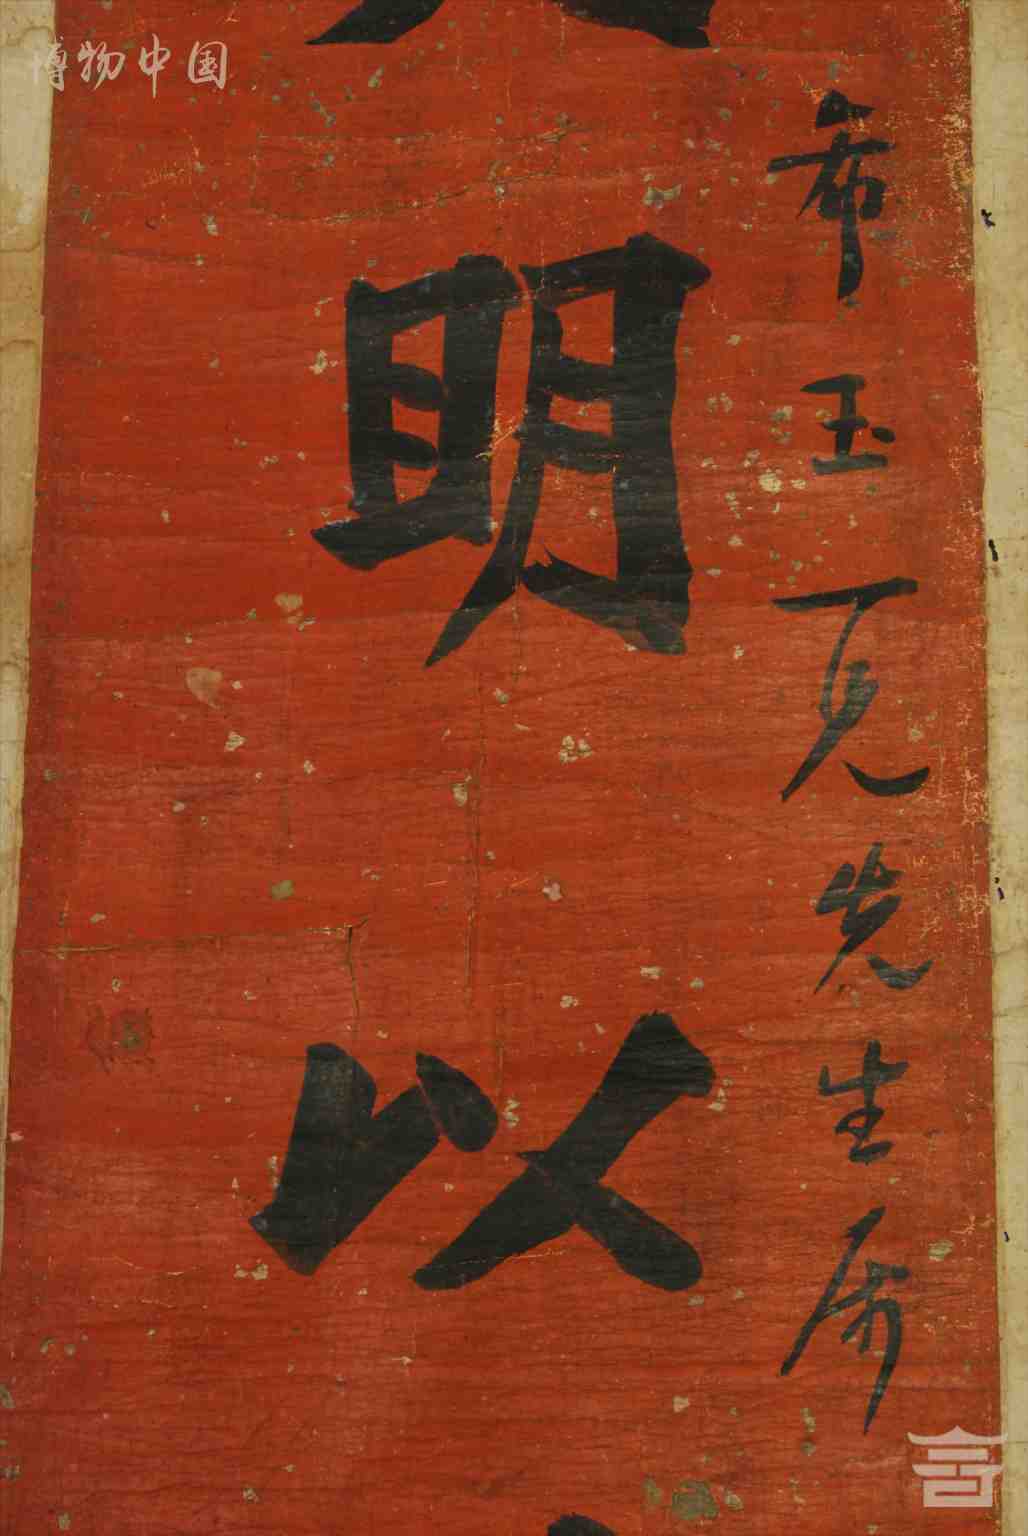 希玉一兄先生属
明以
博物中国